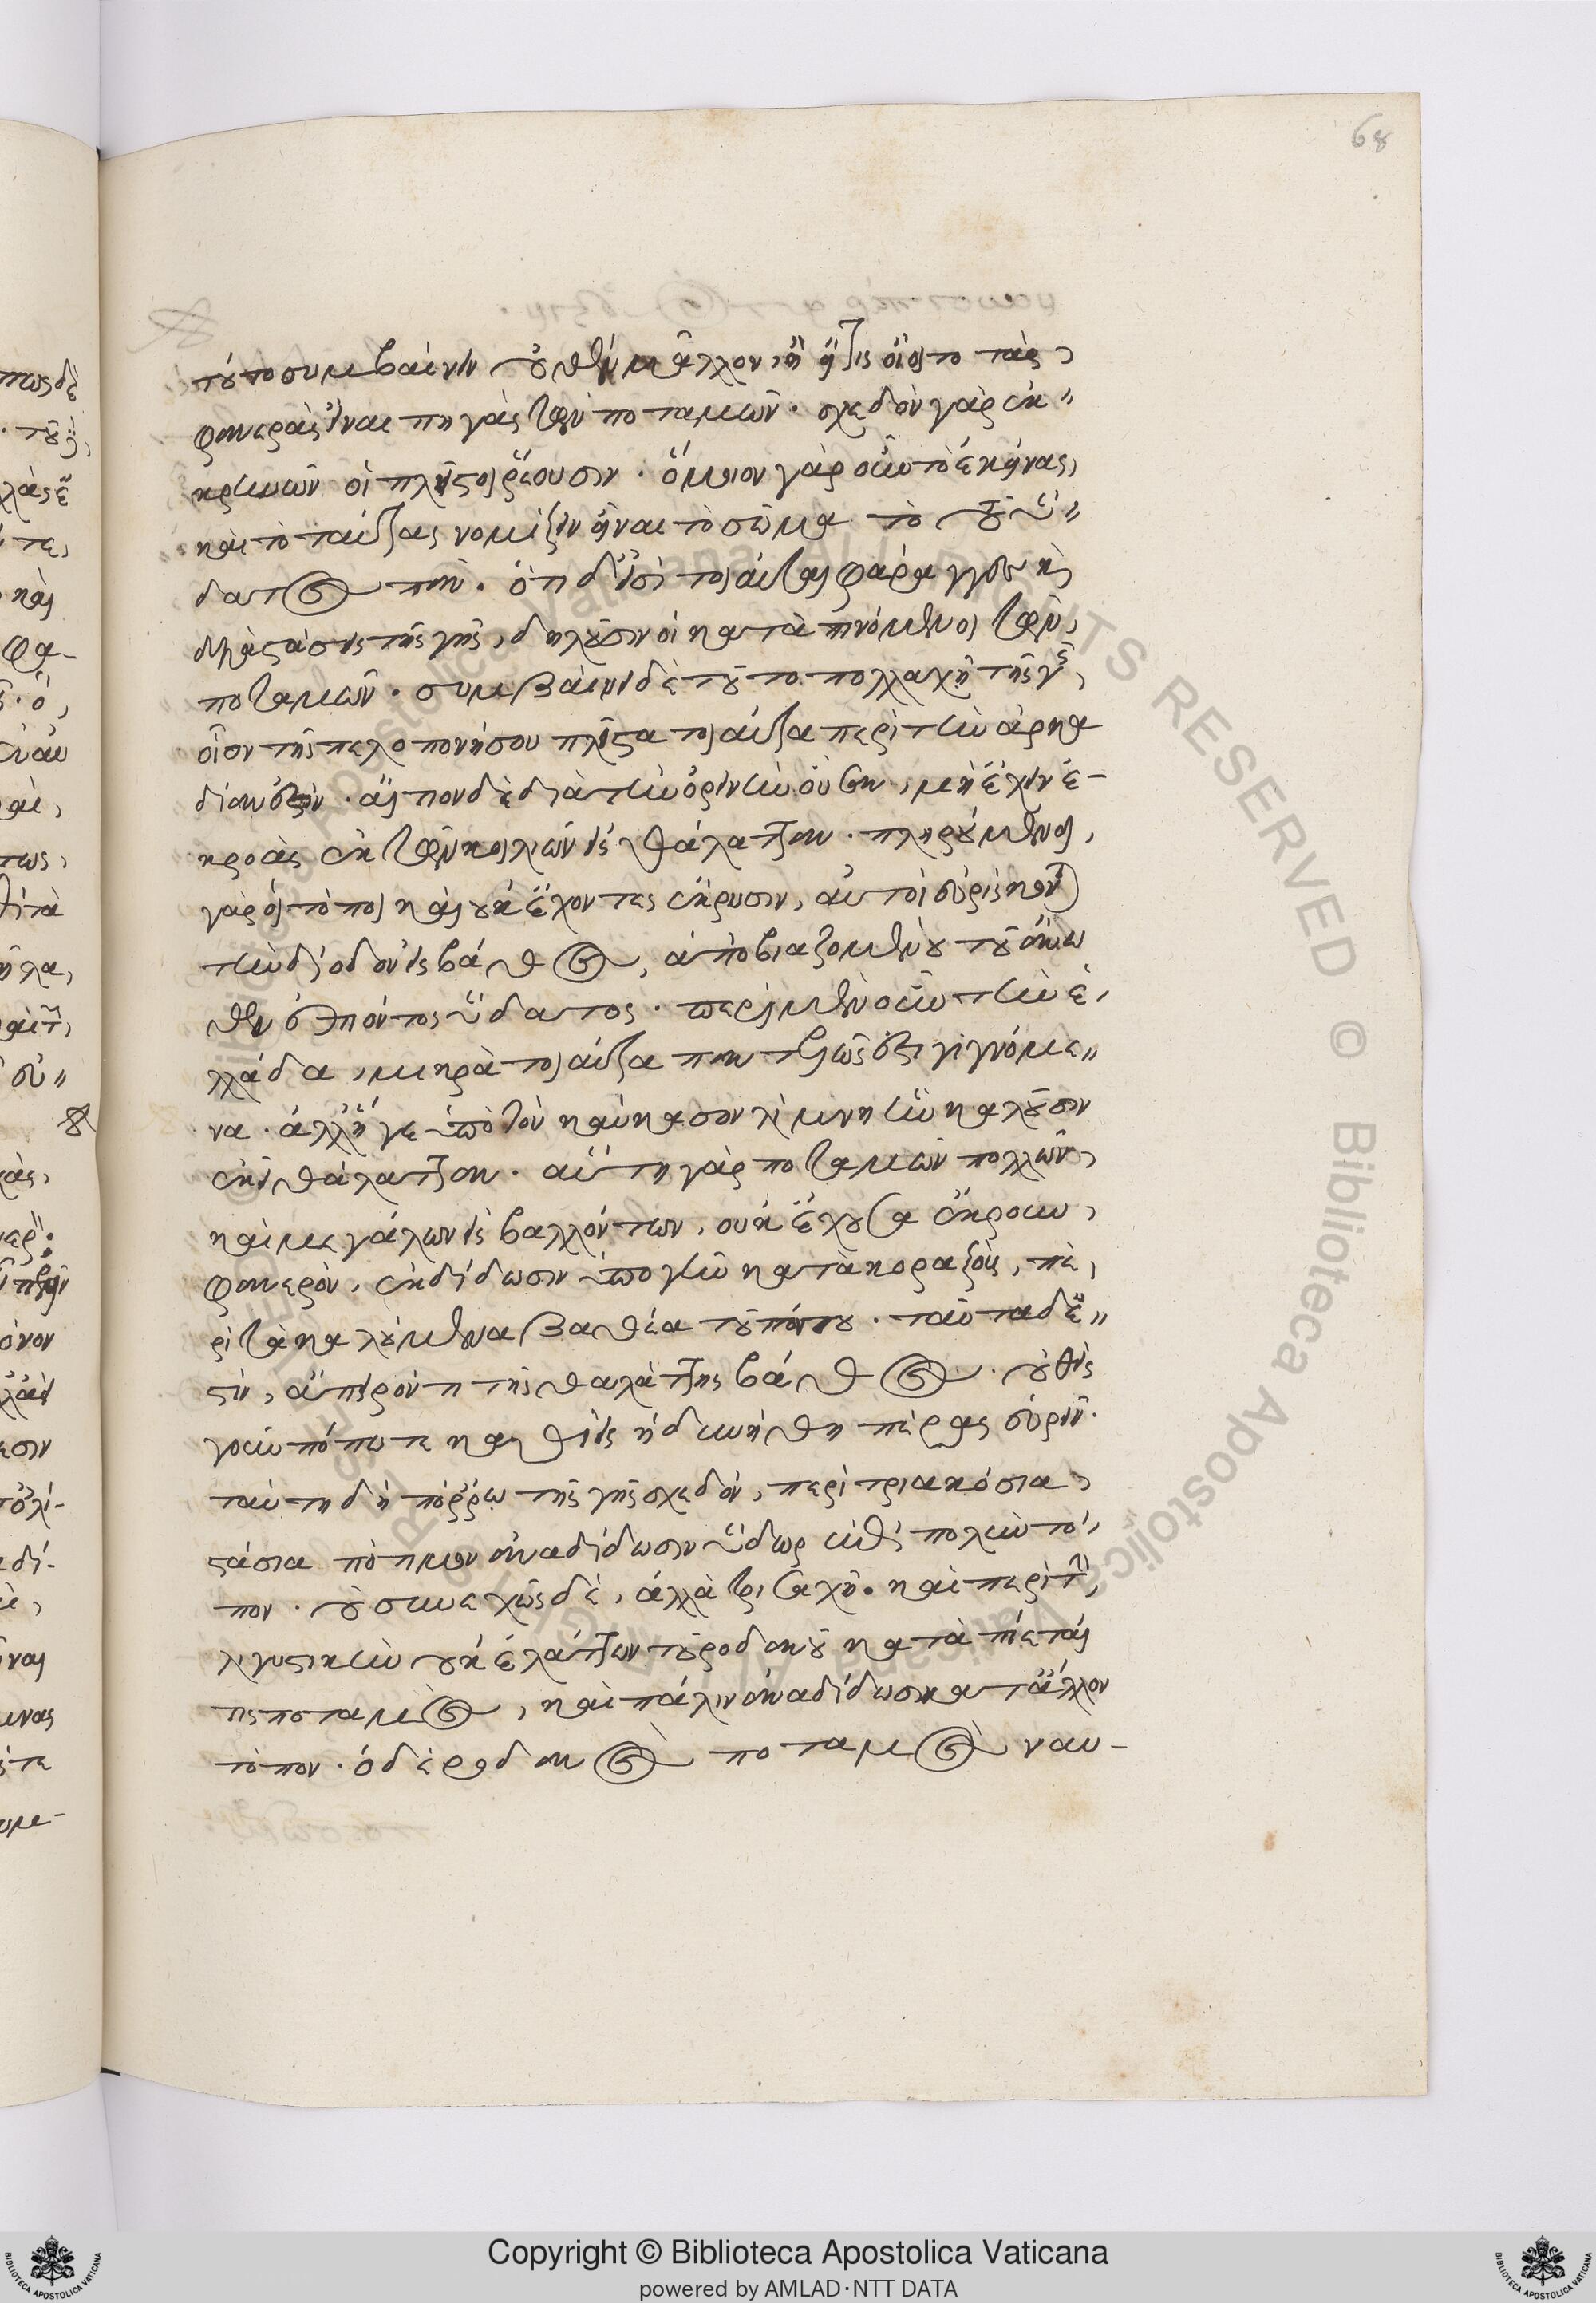 68
τοῦτο συμβαίνειν οὐθὲν μᾶλλον, ἢ εἴ τις οἴοιτο τὰς
φανερὰς εἶναι πηγὰς τῶν ποταμῶν. σχεδὸν γὰρ ἐκ
κρηνῶν οἱ πλεῖστοι ῥέουσιν. ὅμοιον γὰρ οὖν τὸ ἐκείνας,
καὶ τὸ ταύτας νομίζειν εἶναι τὸ σῶμα τὸ τοῦ ὕ
δατος πᾶν. ὅτι δ' εἰσὶ τοιαῦται φάραγγες καὶ
διαστάσεις τῆς γῆς, δηλοῦσιν οἱ καταπινόμενοι τῶν
ποταμῶν. συμβαίνει δὲ τοῦτο πολλαχῆ τῆς γῆς,
οἷον τῆς πελοπονήσου πλεῖστα τοιαῦτα περὶ τὴν ἀρκα
δίαν ἐστίν. αἴτιον δὲ διὰ τὴν ὀρεινὴν οὖσαν, μὴ ἔχειν ἐ-
κροὰς ἐκ τῶν κοιλιῶν εἰς θάλατταν. πληρούμενοι
γὰρ οἱ τόποι καὶ οὐκ ἔχοντες ἔκρυσιν, αὑτοῖς εὑρίσκονται
τὴν δίοδον εἰς βάθος, ἀποβιαζομένου τοῦ ἄνω
θεν ἐπιόντος ὕδατος. περὶ μὲν οὖν τὴν ἑ
λλάδα, μικρὰ τοιαῦτα παντελῶς ἐστι γιγνόμε
να. ἀλλ' ἥ γε ὑπὸ τὸν καύκασον λίμνη ἣν καλοῦσιν
ἐκεῖ θάλατταν. αὕτη γὰρ ποταμῶν πολλῶν
καὶ μεγάλων εἰσβαλλόντων, οὐκ ἔχουσα ἔκρουν
φανερὸν, ἐκδίδωσιν ὑπὸ γῆν κατὰ κοραξοὺς, πε
ρὶ τὰ καλούμενα βαθέα τοῦ πόντου. ταῦτα δ' ἔ
στιν, ἄπειρόν τι τῆς θαλάττης βάθος. οὐθεὶς
γοῦν πώποτε καθεὶς ἠδυνήθη πέρας εὑρεῖν.
ταύτη δὴ πόρρω τῆς γῆς σχεδὸν, περὶ τριακόσια
στάδια πότιμον ἀναδίδωσιν ὕδωρ ἐπὶ πολὺν τό
πον. οὐ συνεχῶς δὲ, ἀλλὰ τρισσαχῆ. καὶ περὶ τὴν
λιγυστικὴν οὐκ ἐλάττων τοῦ ροδανοῦ καταπίνεταί
τις ποταμὸς, καὶ πάλιν ἀναδίδωσι κατ' ἄλλον
τόπον. ὁ δὲ ροδανὸς ποταμὸς ναυ-
Copyright © Biblioteca Apostolica Vaticana
powered by AMLAD·NTT DATA